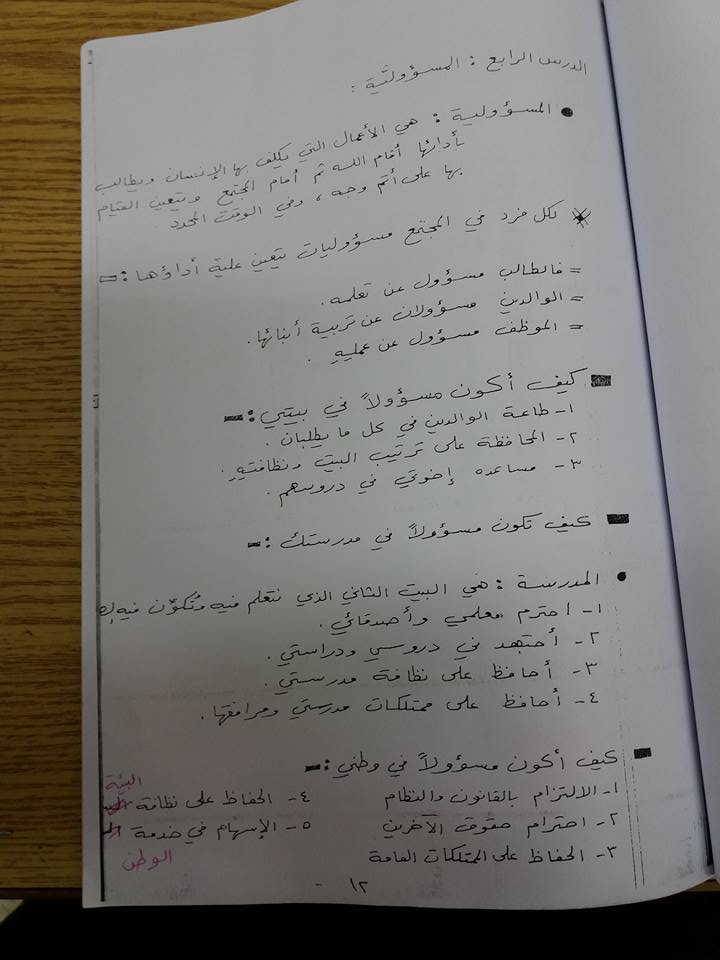 الدرس الرابع : المسؤولية :
● المسؤولية : هي الأعمال التي يكلف بها الإنسان ويطالب
بأدائها أمام الله ثم أمام المجتمع ويتعين القيام
بها على أتم وجه ، وفي الوقت المحدد .
* لكل فرد في المجتمع مسؤوليات يتعين عليه أداؤها :-
= فالطالب مسؤول عن تعلمه .
= الوالدين مسؤولان عن تربية أبنائها .
= الموظف مسؤول عن عمله .
كيف أكون مسؤولاً في بيتي :-
١- طاعة الوالدين في كل ما يطلبان .
٢- المحافظة على ترتيب البيت ونظافته .
٣- مساعده إخوتي في دروسهم .
كيف تكون مسؤولاً في مدرستك :-
● المدرسة : هي البيت الثاني الذي نتعلم فيه ونُكوّن فيه
١- احترم معلمي وأصدقائي .
٢- أجتهد في دروسي ودراستي .
٣- أحافظ على نظافة مدرستي .
٤- أحافظ على ممتلكات مدرستي ومرافقها .
كيف أكون مسؤولاً في وطني :-
١- الالتزام بالقانون والنظام
٢- احترام حقوق الآخرين
٣- الحفاظ على الممتلكات العامة
٤- الحفاظ على نظافة البيئة
٥- الإسهام في خدمة الوطن
١٢